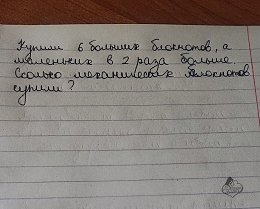 Купили 6 больших блокнотов, а
маленьких в 2 раза больше.
Сколько механических блокнотов
купили?